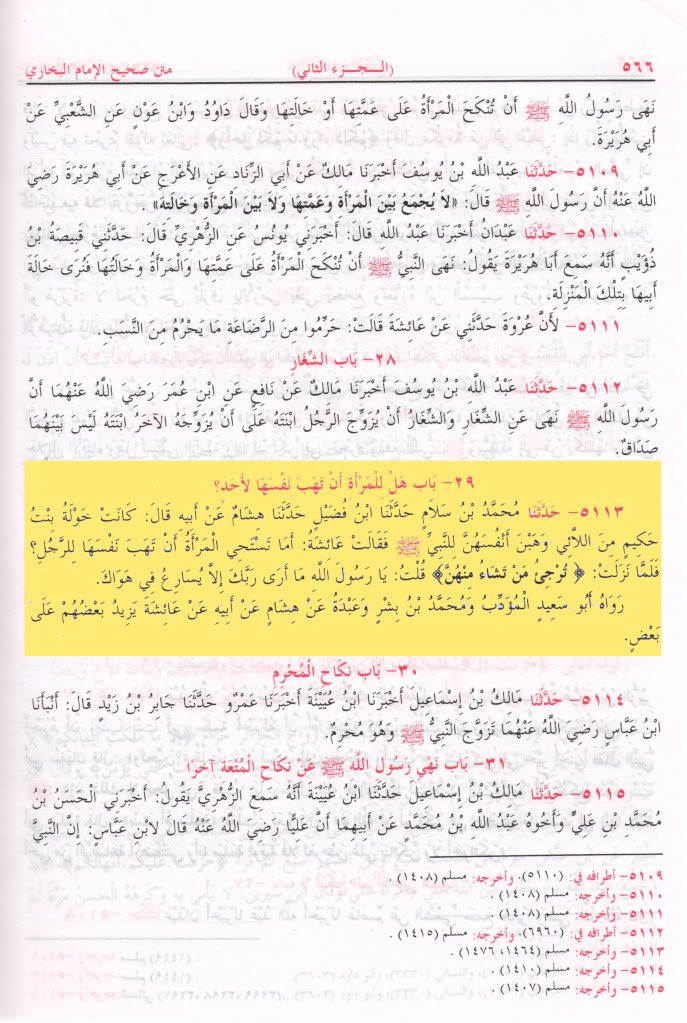 ٥٦٦ (الـجـزء الثاني) متن صحيح الإمام البخاري
نَهَى رَسُولُ اللَّهِ ﷺ أَنْ تُنْكَحَ الْمَرْأَةُ عَلَى عَمَّتِهَا أَوْ خَالَتِهَا وَقَالَ دَاوُدُ وَابْنُ عَوْنٍ عَنِ الشَّعْبِيِّ عَنْ
أَبِي هُرَيْرَةَ.
٥١٠٩- حَدَّثَنَا عَبْدُ اللَّهِ بْنُ يُوسُفَ أَخْبَرَنَا مَالِكٌ عَنْ أَبِي الزِّنَادِ عَنِ الأَعْرَجِ عَنْ أَبِي هُرَيْرَةَ رَضِيَ
اللَّهُ عَنْهُ أَنَّ رَسُولَ اللَّهِ ﷺ قَالَ: «لاَ يُجْمَعُ بَيْنَ الْمَرْأَةِ وَعَمَّتِهَا وَلاَ بَيْنَ الْمَرْأَةِ وَخَالَتِهَ» .
٥١١٠- حَدَّثَنَا عَبْدَانُ أَخْبَرَنَا عَبْدُ اللَّهِ قَالَ: أَخْبَرَنِي يُونُسُ عَنِ الزُّهْرِيِّ قَالَ: حَدَّثَنِي قَبِيصَةُ بْنُ
ذُؤَيْبٍ أَنَّهُ سَمِعَ أَبَا هُرَيْرَةَ يَقُولُ: نَهَى النَّبِيُّ ﷺ أَنْ تُنْكَحَ الْمَرْأَةُ عَلَى عَمَّتِهَا وَالْمَرْأَةُ وَخَالَتُهَا فَنُرَى خَالَةَ
أَبِيهَا بِتِلْكَ الْمَنْزِلَةِ.
٥١١١- لأَنَّ عُرْوَةَ حَدَّثَنِي عَنْ عَائِشَةَ قَالَتْ: حَرِّمُوا مِنَ الرَّضَاعَةِ مَا يَحْرُمُ مِنَ النَّسَبِ.
٢٨- بَابُ الشِّغَارِ
٥١١٢- حَدَّثَنَا عَبْدُ اللَّهِ بْنُ يُوسُفَ أَخْبَرَنَا مَالِكٌ عَنْ نَافِعٍ عَنِ ابْنِ عُمَرَ رَضِيَ اللَّهُ عَنْهُمَا أَنَّ
رَسُولَ اللَّهِ ﷺ نَهَى عَنِ الشِّغَارِ وَالشِّغَارُ أَنْ يُزَوِّجَ الرَّجُلُ ابْنَتَهُ عَلَى أَنْ يُزَوِّجَهُ الآخَرُ ابْنَتَهُ لَيْسَ بَيْنَهُمَا
صَدَاقٌ.
٢٩- بَاب هَلْ لِلْمَرْأَةِ أَنْ تَهَبَ نَفْسَهَا لأَحَدٍ؟
٥١١٣- حَدَّثَنَا مُحَمَّدُ بْنُ سَلاَمٍ حَدَّثَنَا ابْنُ فُضَيْلٍ حَدَّثَنَا هِشَامٌ عَنْ أَبِيهِ قَالَ: كَانَتْ خَوْلَةُ بِنْتُ
حَكِيمٍ مِنَ اللاَّئِي وَهَبْنَ أَنْفُسَهُنَّ لِلنَّبِيِّ ﷺ فَقَالَتْ عَائِشَةُ: أَمَا تَسْتَحِي الْمَرْأَةُ أَنْ تَهَبَ نَفْسَهَا لِلرَّجُلِ؟
فَلَمَّا نَزَلَتْ: ﴿ تُرْجِئُ مَنْ تَشَاءُ مِنْهُنَّ﴾ قُلْتُ: يَا رَسُولَ اللَّهِ مَا أَرَى رَبَّكَ إِلاَّ يُسَارِعُ فِي هَوَاكَ.
رَوَاهُ أَبُو سَعِيدٍ الْمُؤَدِّبُ وَمُحَمَّدُ بْنُ بِشْرٍ وَعَبْدَةُ عَنْ هِشَامٍ عَنْ أَبِيهِ عَنْ عَائِشَةَ يَزِيدُ بَعْضُهُمْ عَلَى
بَعْضٍ.
٣٠- بَابُ نِكَاحِ الْمُحْرِمِ
٥١١٤- حَدَّثَنَا مَالِكُ بْنُ إِسْمَاعِيلَ أَخْبَرَنَا ابْنُ عُيَيْنَةَ أَخْبَرَنَا عَمْرٌو حَدَّثَنَا جَابِرُ بْنُ زَيْدٍ قَالَ: أَنْبَأَنَا
ابْنُ عَبَّاسٍ رَضِيَ اللَّهُ عَنْهُمَا تَزَوَّجَ النَّبِيُّ ﷺ وَهُوَ مُحْرِمٌ.
٣١- بَاب نَهْيِ رَسُولِ اللَّهِ ﷺ عَنْ نِكَاحِ الْمُتْعَةِ آخِرًا
٥١١٥- حَدَّثَنَا مَالِكُ بْنُ إِسْمَاعِيلَ حَدَّثَنَا ابْنُ عُيَيْنَةَ أَنَّهُ سَمِعَ الزُّهْرِيَّ يَقُولُ: أَخْبَرَنِي الْحَسَنُ بْنُ
مُحَمَّدِ بْنِ عَلِيٍّ وَأَخُوهُ عَبْدُ اللَّهِ بْنُ مُحَمَّدٍ عَنْ أَبِيهِمَا أَنَّ عَلِيًّا رَضِيَ اللَّهُ عَنْهُ قَالَ لاِبْنِ عَبَّاسٍ: إِنَّ النَّبِيَّ
٥١٠٩- أطرافه في: (٥١١٠)، وأخرجه: مسلم (١٤٠٨) .
٥١١٠- وأخرجه: مسلم (١٤٠٨) .
٥١١١- وأخرجه: مسلم (١٤٠٨) .
٥١١٢- أطرافه في: (٦٩٦٠)، وأخرجه: مسلم (١٤١٥) .
٥١١٣- وأخرجه: مسلم (١٤٦٤، ١٤٧٦) .
٥١١٤- وأخرجه: مسلم (١٤١٠) .
٥١١٥- وأخرجه: مسلم (١٤٠٧) .